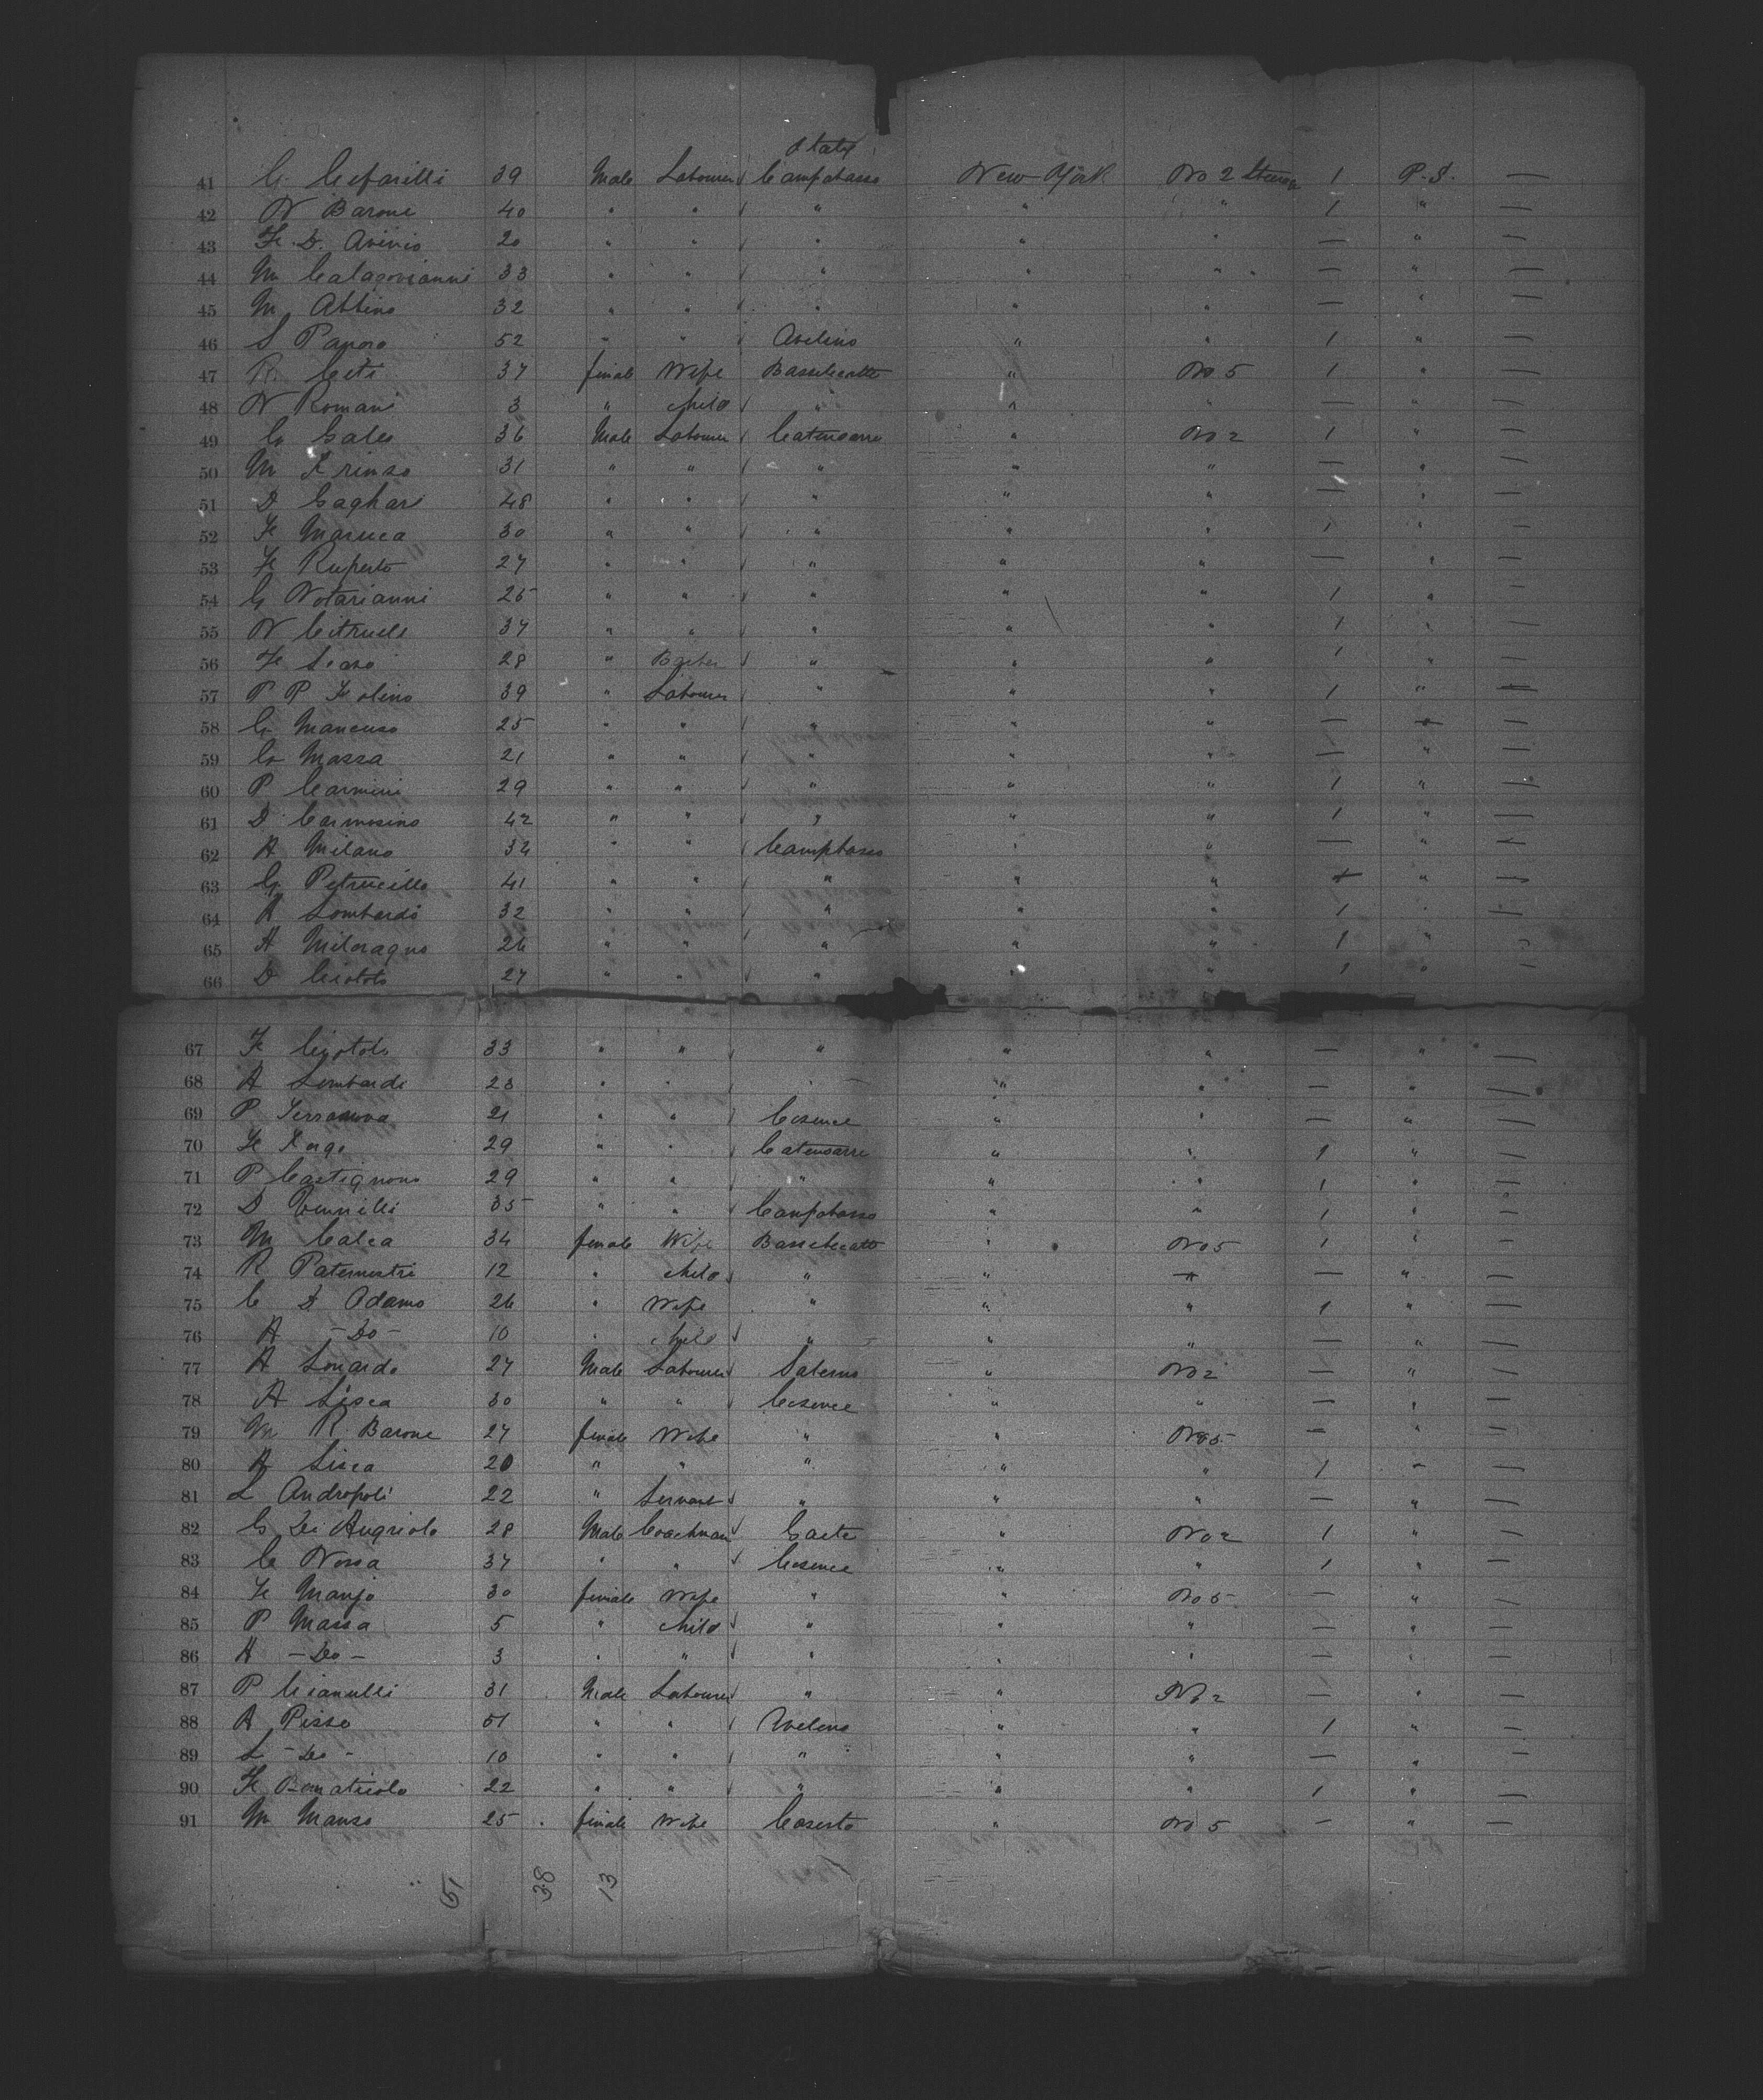 Italy
41 G. Cefarilli 39 Male Labourer Campobasso New York No 2 Steerage 1 P.S. —
42 N Barone 40 " " " " " 1 " —
43 F. D. Avinio 20 " " " " " — " —
44 M Calagovianni 33 " " " " " — " —
45 M Attino 32 " " " " " — " —
46 S Panoro 52 " " Avelino " " 1 " —
47 R. Ceti 37 female Wife Bassilicatta " No 5 1 " —
48 N Romani 3 " child " " " — " —
49 G Galeo 36 Male Labourer Catensarro " No 2 1 " —
50 M 31 " " " " " — " —
51 D Gaghari 48 " " " " " — " —
52 F Maruca 30 " " " " " 1 " —
53 F Ruperto 27 " " " " " — " —
54 G Notarianni 25 " " " " " 1 " —
55 N Citrule 37 " " " " " 1 " —
56 F 28 " " " " 1 " —
57 P P Folino 39 " Labourer " " " 1 " —
58 G Mancuso 25 " " " " " — " —
59 G Massa 21 " " " " " — " —
60 P Carmini 29 " " " " " 1 " —
61 D Carmosino 42 " " " " " 1 " —
62 A Milano 32 " " Campbasso " " — " —
63 G Petrucillo 41 " " " " " " —
64 A Lombardi 32 " " " " " 1 " —
65 A Miloragno 26 " " " " " 1 " —
66 D Ciototo 27 " " " " " 1 " —
67 F Ciototo 33 " " " " " — " —
68 A Lombardi 28 " " " " " — " —
69 P Terranova 21 " " Cosence " " — " —
70 F 29 " " Catensarro " " 1 " —
71 P Castignono 29 " " " " " 1 " —
72 D 35 " " Campobasso " " 1 " —
73 M Calca 34 female Wife Bassilicatto " No 5 1 " —
74 R Paternostri 12 " child " " " — " —
75 C D Adamo 26 " Wife " " " 1 " —
76 A – Do – 10 " child " " " — " —
77 A Lonardo 27 Male Labourer Salerno " No 2 — " —
78 A Lisca 30 " " Cosence " " — " —
79 M R Barone 27 female Wife " " No 5 — " —
80 A Lisca 20 " " " " " 1 " —
81 L Andropoli 22 " Servant " " " — " —
82 G De Angriolo 28 Male Coachman Gaeta " No 2 1 " —
83 C Nossa 37 " " Cosence " " 1 " —
84 F Manjo 30 female Wife " " No 5 — " —
85 P Massa 5 " child " " " — " —
86 A – Do – 3 " " " " " — " —
87 P Cianulli 31 Male Labourer " " No 2 — " —
88 A Pisso 51 " " Avelino " " 1 " —
89 L – Do – 10 " " " " " — " —
90 F Bonaticolo 22 " " " " " 1 " —
91 M Manso 25 female Wife Coserta " No 5 — " —
51 38 13